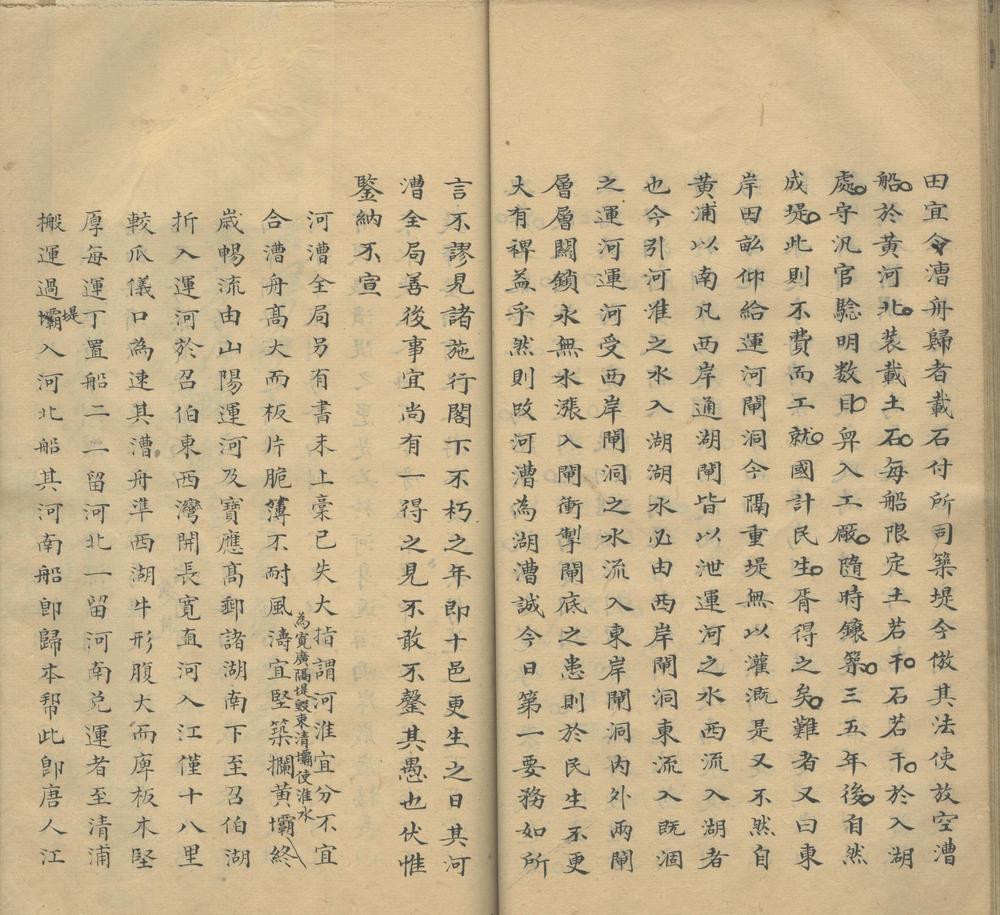 田宜令漕舟歸者載石付所司築堤今倣其法使放空漕
船於黃河北装載土石每船限定土若干石若干於入湖
處守汛官驗明数目畀入工廠隨時鑲築三五年後自然
成堤此則不費而工就國計民生胥得之矣難者又曰東
岸田畝仰給運河閘洞今隔重堤無以灌溉是又不然自
黃浦以南凡西岸通湖閘皆以泄運河之水西流入湖者
也今引河淮之水入湖湖水必由西岸閘洞東流入既涸
之運河運河受西岸閘洞之水流入東岸閘洞内外兩閘
層層關鎖永無水漲入閘衝掣閘底之患則於民生不更
大有裨益乎然則改河漕為湖漕誠今日第一要務如所
言不謬見諸施行閣下不朽之年即十邑更生之日其河
漕全局善後事宜尚有一得之見不敢不罄其愚也伏惟
鑒納不宣
河漕全局另有書未上稾已失大指謂河淮宜分不宜
合漕舟高大而板片脆薄不耐風濤宜堅築攔黃壩終
為寬廣隔堤毀束清壩使淮水
歲暢流由山陽運河及寶應高郵諸湖南下至召伯湖
折入運河於召伯東西灣開長寬直河入江僅十八里
較瓜儀口為速其漕舟準西湖牛形腹大而庳板木堅
厚每運丁置船二二留河北一留河南兑運者至清浦
搬運過壩堤入河北船其河南船卽歸本幇此卽唐人江